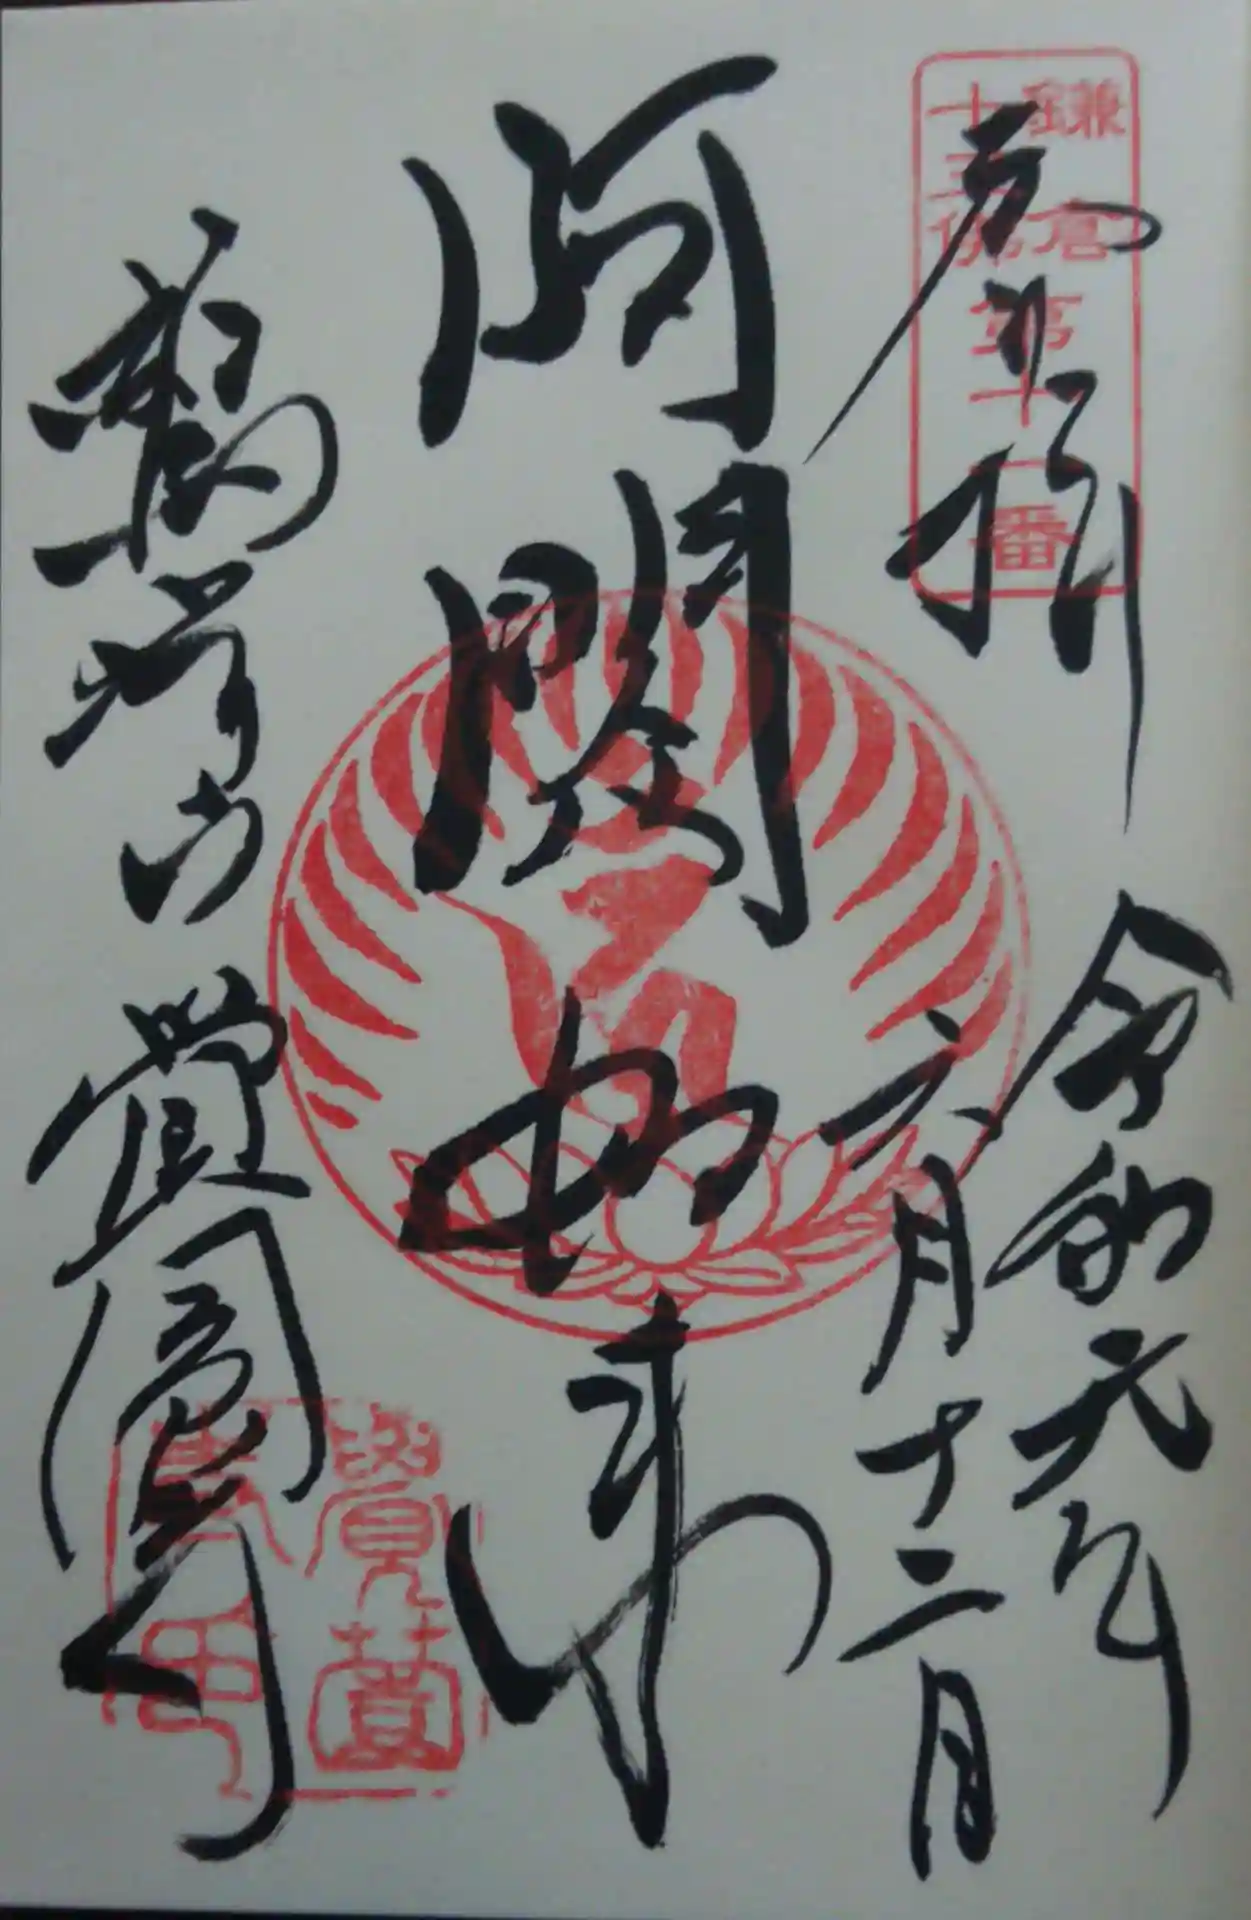 鎌倉
十三佛
第十一番
奉拝
令和元年
六月十二日
阿閦如来
鷲峰山 覺園寺
覺薗
寺印